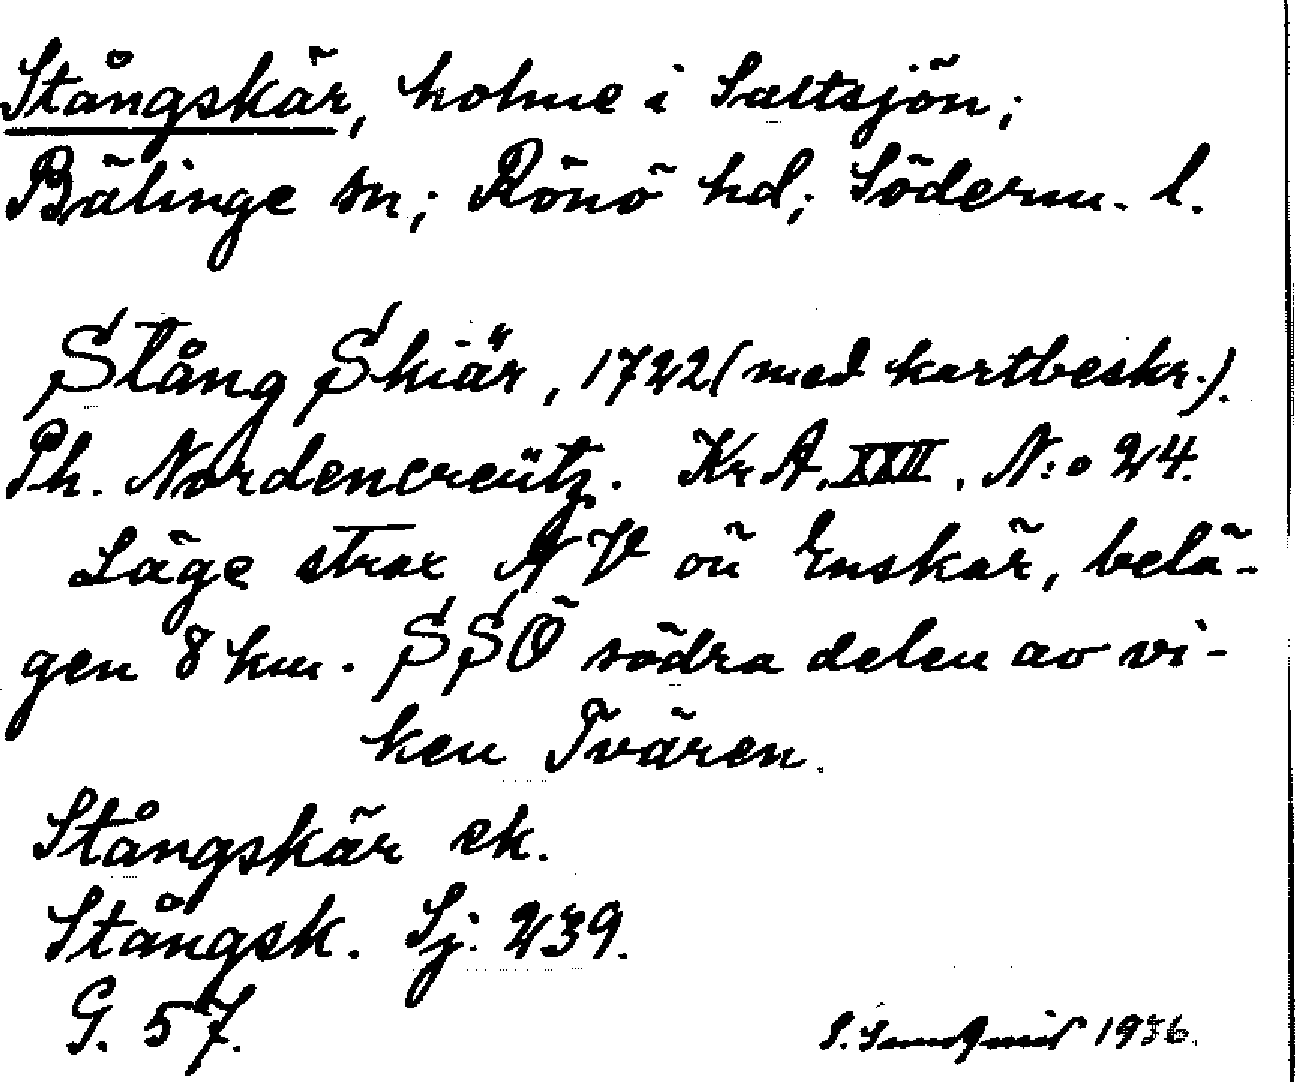 Stångskär, holme i Saltsjön;
Bälinge sn; Rönö hd; Söderm. l.
Stång Skiär, 1722 (med kartbeskr.).
Ph. Nordencreütz. Kr A. XXII. N:o 24.
Läge strax NV om Enskär, belä-
gen 8 km. SSÖ södra delen av vi-
ken Tvären.
Stångskär ek.
Stångsk. Sj. 239.
G. 57.
1936.